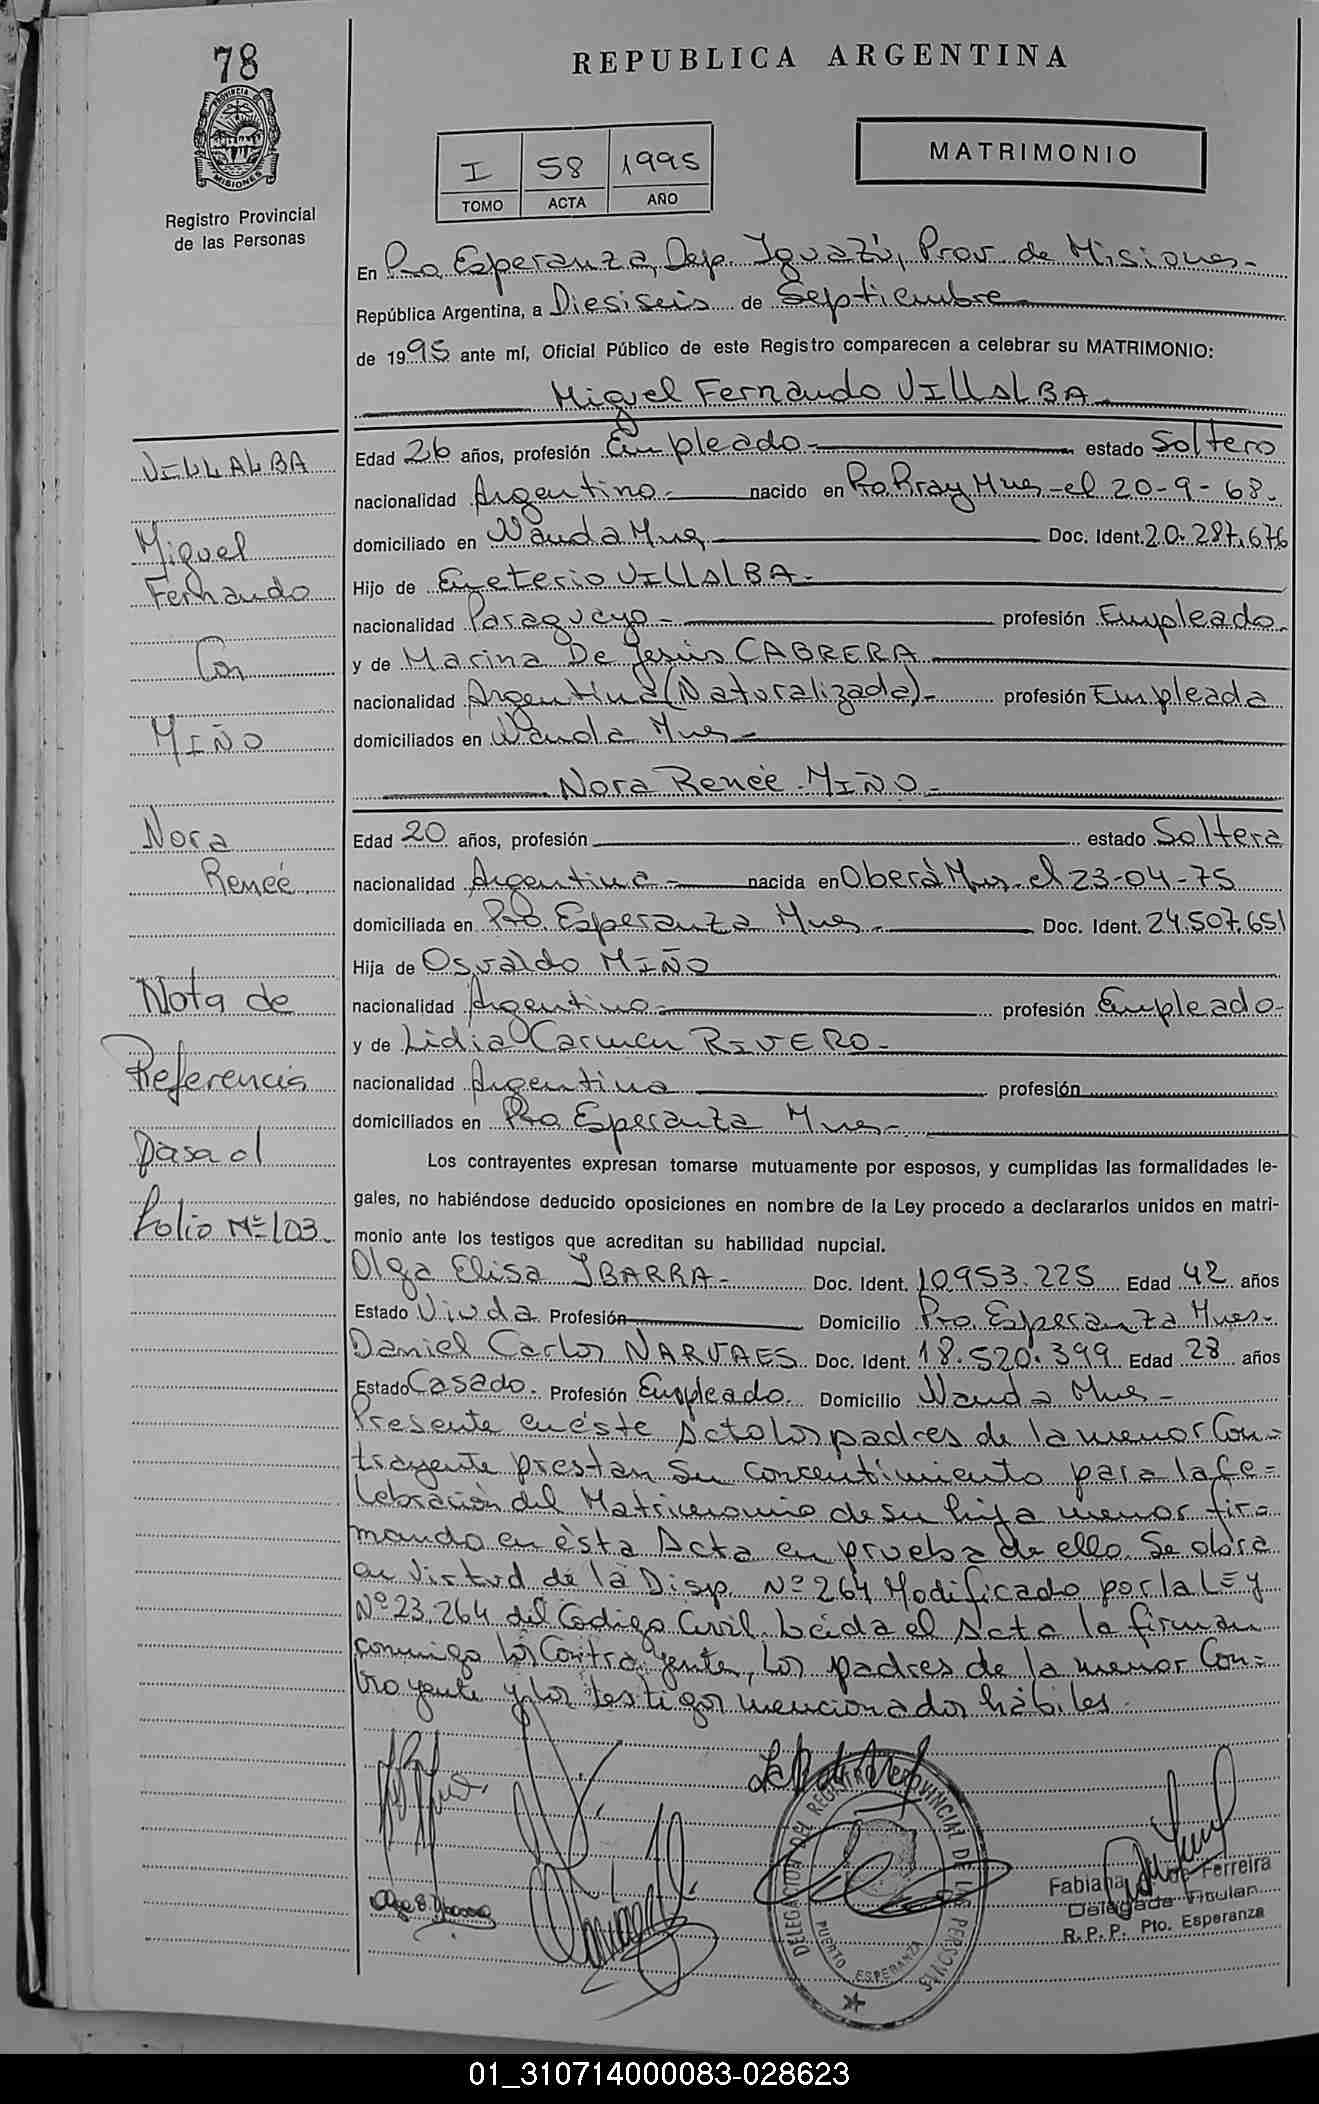 78
REPUBLICA ARGENTINA
PROVINCIA DE MISIONES
Registro Provincial
de las Personas
I 58 1995
TOMO ACTA AÑO
MATRIMONIO
En Pto Esperanza, Dep. Iguazú, Prov. de Misiones-
República Argentina, a Diesiseis de Septiembre
de 1995 ante mí, Oficial Público de este Registro comparecen a celebrar su MATRIMONIO:
Miguel Fernando VILLALBA
Edad 26 años, profesión Empleado- estado Soltero
nacionalidad Argentino- nacido en Pto Piray Mnes-el 20-9-68.
domiciliado en Wanda Mnes Doc. Ident. 20.287.676
Hijo de Emeterio VILLALBA-
nacionalidad Paraguayo- profesión Empleado.
y de Marina De Jesús CABRERA
nacionalidad Argentina (Naturalizada)- profesión Empleada
domiciliados en Wanda Mnes-
Nora Reneé MIÑO-
Edad 20 años, profesión estado Soltera
nacionalidad Argentina- nacida en Oberá Mnes- el 23-04-75
domiciliada en Pto. Esperanza Mnes- Doc. Ident. 24.507.651
Hija de Osvaldo MIÑO
nacionalidad Argentino- profesión Empleado-
y de Lidia Carmen RIVERO-
nacionalidad Argentina profesión
domiciliados en Pto Esperanza Mnes-
Los contrayentes expresan tomarse mutuamente por esposos, y cumplidas las formalidades le-
gales, no habiéndose deducido oposiciones en nombre de la Ley procedo a declararlos unidos en matri-
monio ante los testigos que acreditan su habilidad nupcial.
Olga Elisa IBARRA- Doc. Ident. 10953.225 Edad 42 años
Estado Viuda Profesión Domicilio Pto. Esperanza Mnes-
Daniel Carlos NARVAES Doc. Ident. 18.520.399 Edad 28 años
Estado Casado. Profesión Empleado. Domicilio Wanda Mnes-
Presente en éste Acto los padres de la menor Con=
trayente prestan su concentimiento para la Ce=
lebración del Matrimonio de su hija menor fir=
mando en ésta Acta en prueba de ello. Se obra
en virtud de la Disp. Nº 264 Modificado por la LEY
Nº 23.264 del Codigo Civil. Leída el Acta la firman
conmigo los Contrayente, los padres de la menor Con=
trayente y los testigos mencionados hábiles.
VILLALBA
Miguel
Fernando
Con
MIÑO
Nora
Reneé
Nota de
Referencia
Pasa al
Folio Nº 103.
DELEGACION DEL REGISTRO PROVINCIAL DE LAS PERSONAS
PUERTO ESPERANZA
Fabiana de Ferreira
Delegada Titular
R. P. P. Pto. Esperanza
01_310714000083-028623